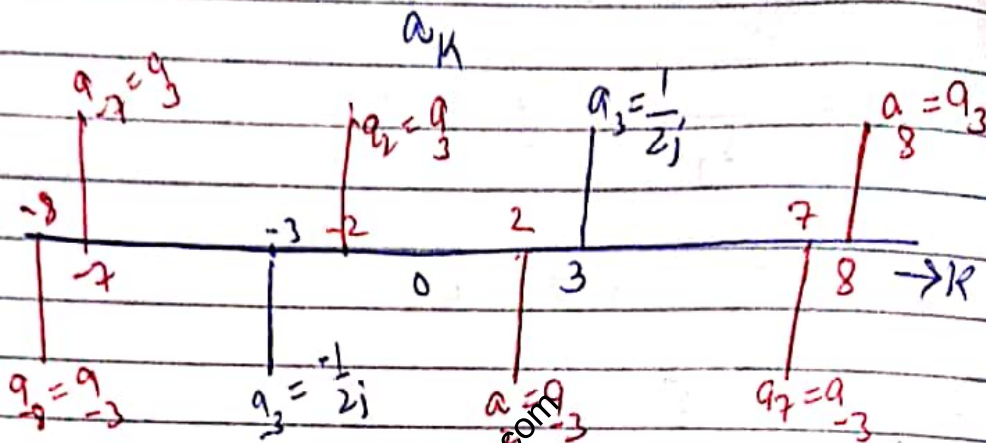 a_K
a_-7 = a_3
a_2 = a_3
a_3 = 1/2j
a_8 = a_3
-8 -3 -2 2 7
-7 0 3 8 → K
a_-8 = a_-3
a_-3 = -1/2j
a = a_-3
a_7 = a_-3
.com